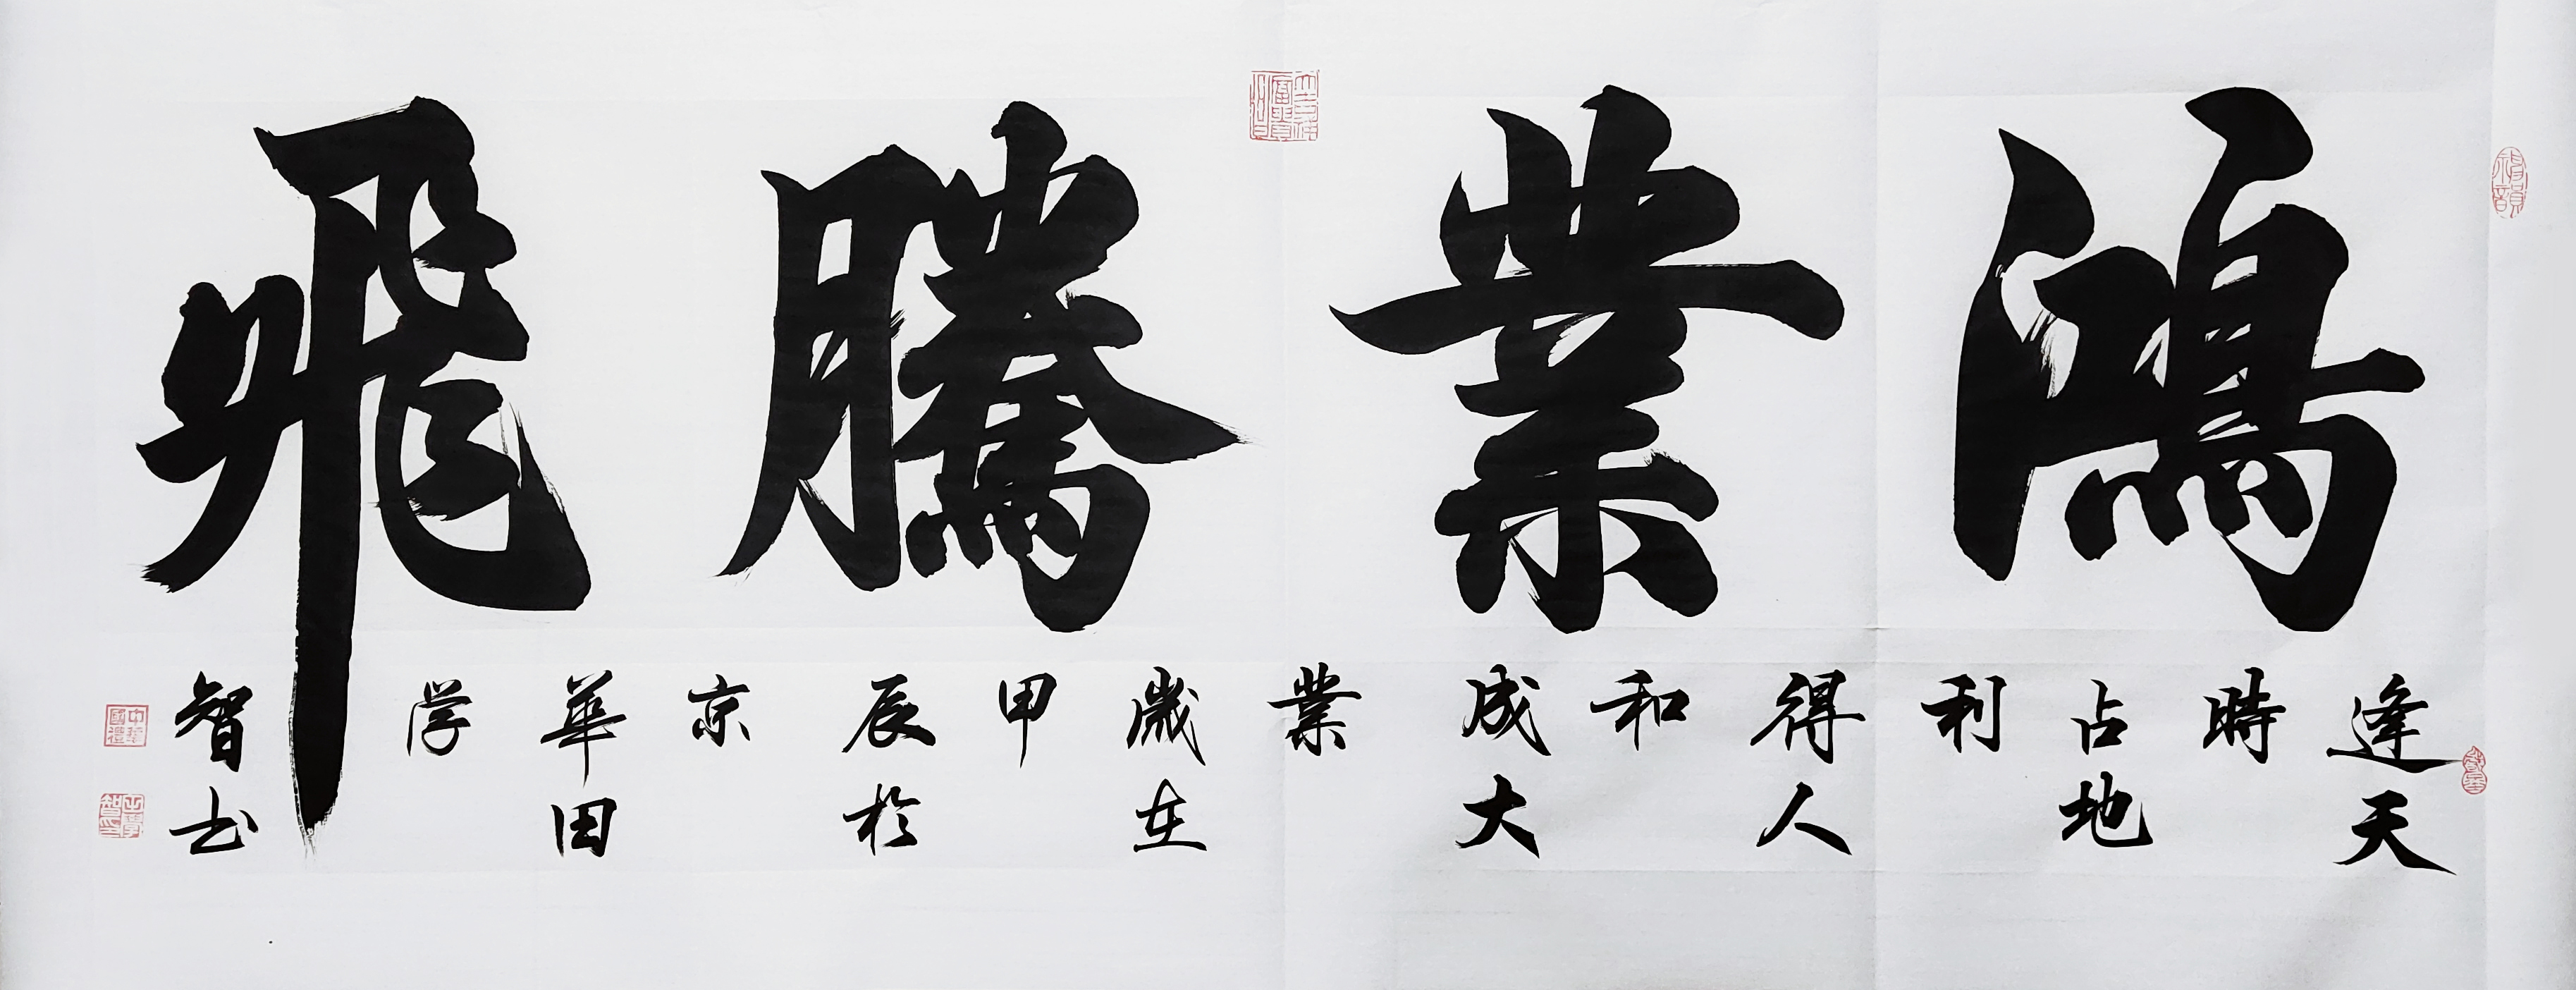 鴻業騰飛
逢天
時
占地
利
得人
和
成大
業
歲在
甲
辰於
京
華田
学
智书